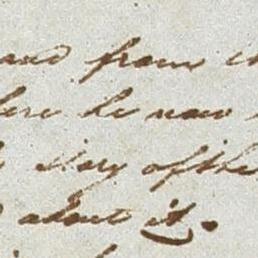 and from
here he now
story of the
about it.